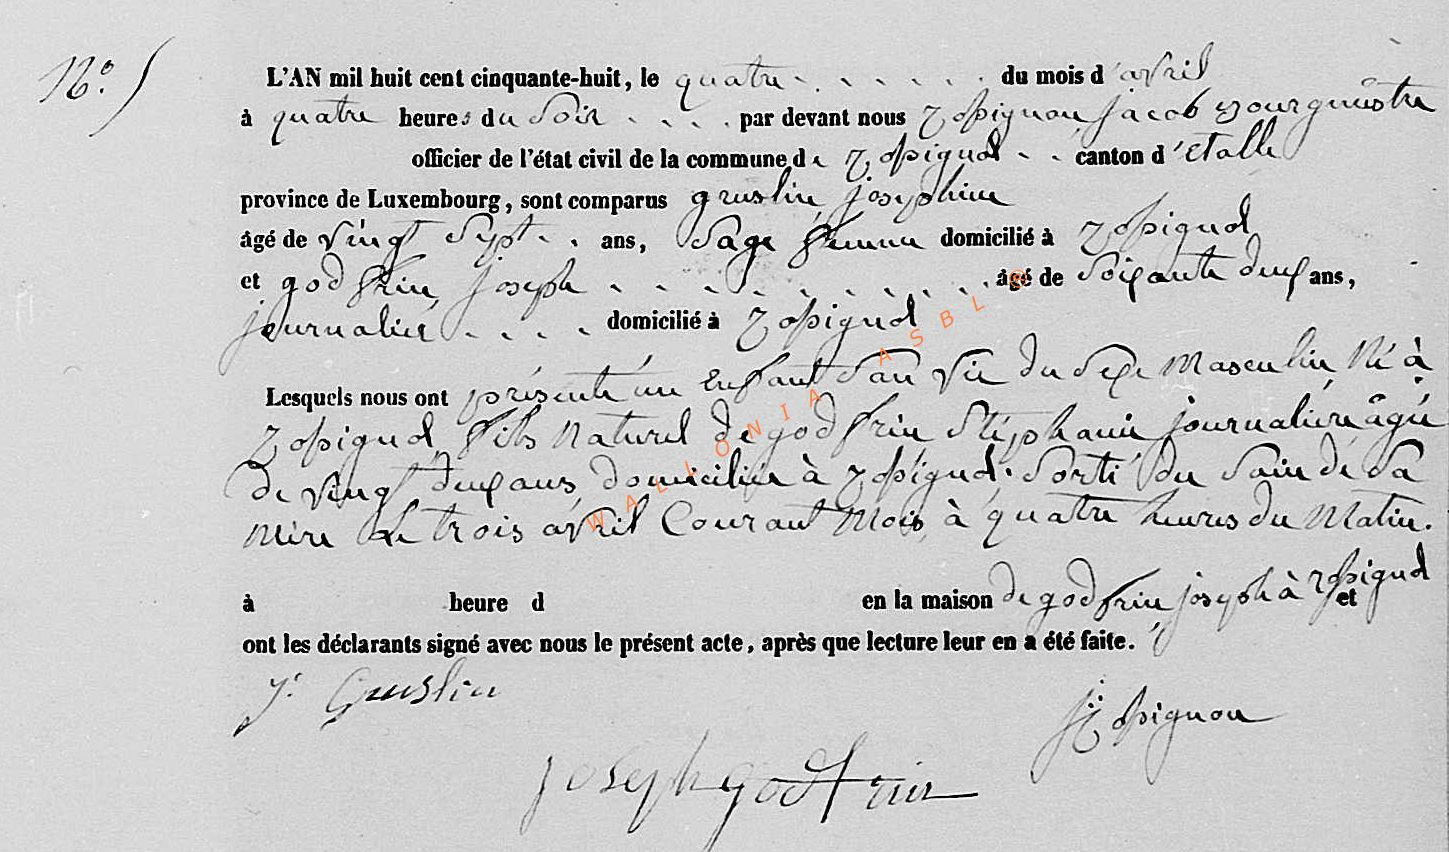 N.° 5
L'AN mil huit cent cinquante-huit, le quatre . . . . . . du mois d'avril
à quatre heures du Soir . . . . par devant nous Zopignon jacob Bourgmestre
officier de l'état civil de la commune de Zopignol . . canton d'étalle
province de Luxembourg, sont comparus gruslin josephine
âgé de vingt Sept . . ans, Sage femme domicilié à Zopignol
et godfrin joseph . . . . . . . . . . . âgé de Soixante deux ans,
journalier . . . . domicilié à Zopignol
Lesquels nous ont présenté un Enfant San vie du Sexe Masculin Né à
Zopignol fils Naturel de godfrin Stéphanie journalière âgée
de vingt deux ans domiciliée à Zopignol. Sorti du Sain de Sa
Mère Le trois avril Courant Mois, à quatre heures du Matin.
à heure d en la maison de godfrin joseph à Zopignol et
ont les déclarants signé avec nous le présent acte, après que lecture leur en a été faite.
J. Gruslin
Zopignon
joseph godfrin
WALLONIA ASBL ©